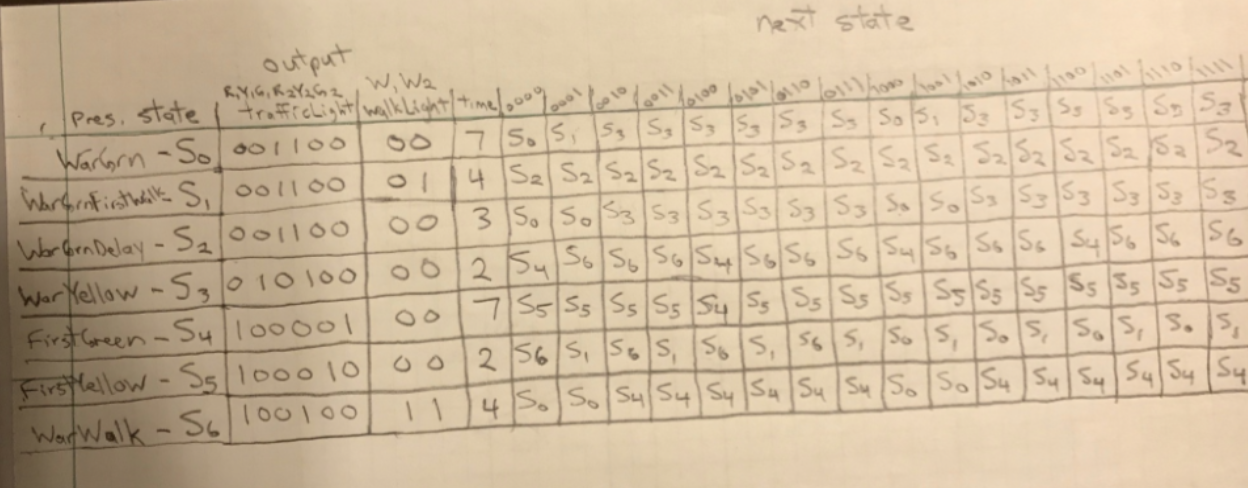 next state
output
R₁Y₁G₁R₂Y₂G₂ W₁W₂
Pres. state trafficLight walkLight time 0000 0001 0010 0011 0100 0101 0110 0111 1000 1001 1010 1011 1100 1101 1110 1111
WarGrn - S₀ 001100 00 7 S₀ S₁ S₃ S₃ S₃ S₃ S₃ S₃ S₀ S₁ S₃ S₃ S₃ S₃ S₃ S₃
WarGrnFirstWalk - S₁ 001100 01 4 S₂ S₂ S₂ S₂ S₂ S₂ S₂ S₂ S₂ S₂ S₂ S₂ S₂ S₂ S₂ S₂
WarGrnDelay - S₂ 001100 00 3 S₀ S₀ S₃ S₃ S₃ S₃ S₃ S₃ S₀ S₀ S₃ S₃ S₃ S₃ S₃ S₃
WarYellow - S₃ 010100 00 2 S₄ S₆ S₆ S₆ S₄ S₆ S₆ S₆ S₄ S₆ S₆ S₆ S₄ S₆ S₆ S₆
FirstGreen - S₄ 100001 00 7 S₅ S₅ S₅ S₅ S₄ S₅ S₅ S₅ S₅ S₅ S₅ S₅ S₅ S₅ S₅ S₅
FirstYellow - S₅ 100010 00 2 S₆ S₁ S₆ S₁ S₆ S₁ S₆ S₁ S₀ S₁ S₀ S₁ S₀ S₁ S₀ S₁
WarWalk - S₆ 100100 11 4 S₀ S₀ S₄ S₄ S₄ S₄ S₄ S₄ S₀ S₀ S₄ S₄ S₄ S₄ S₄ S₄